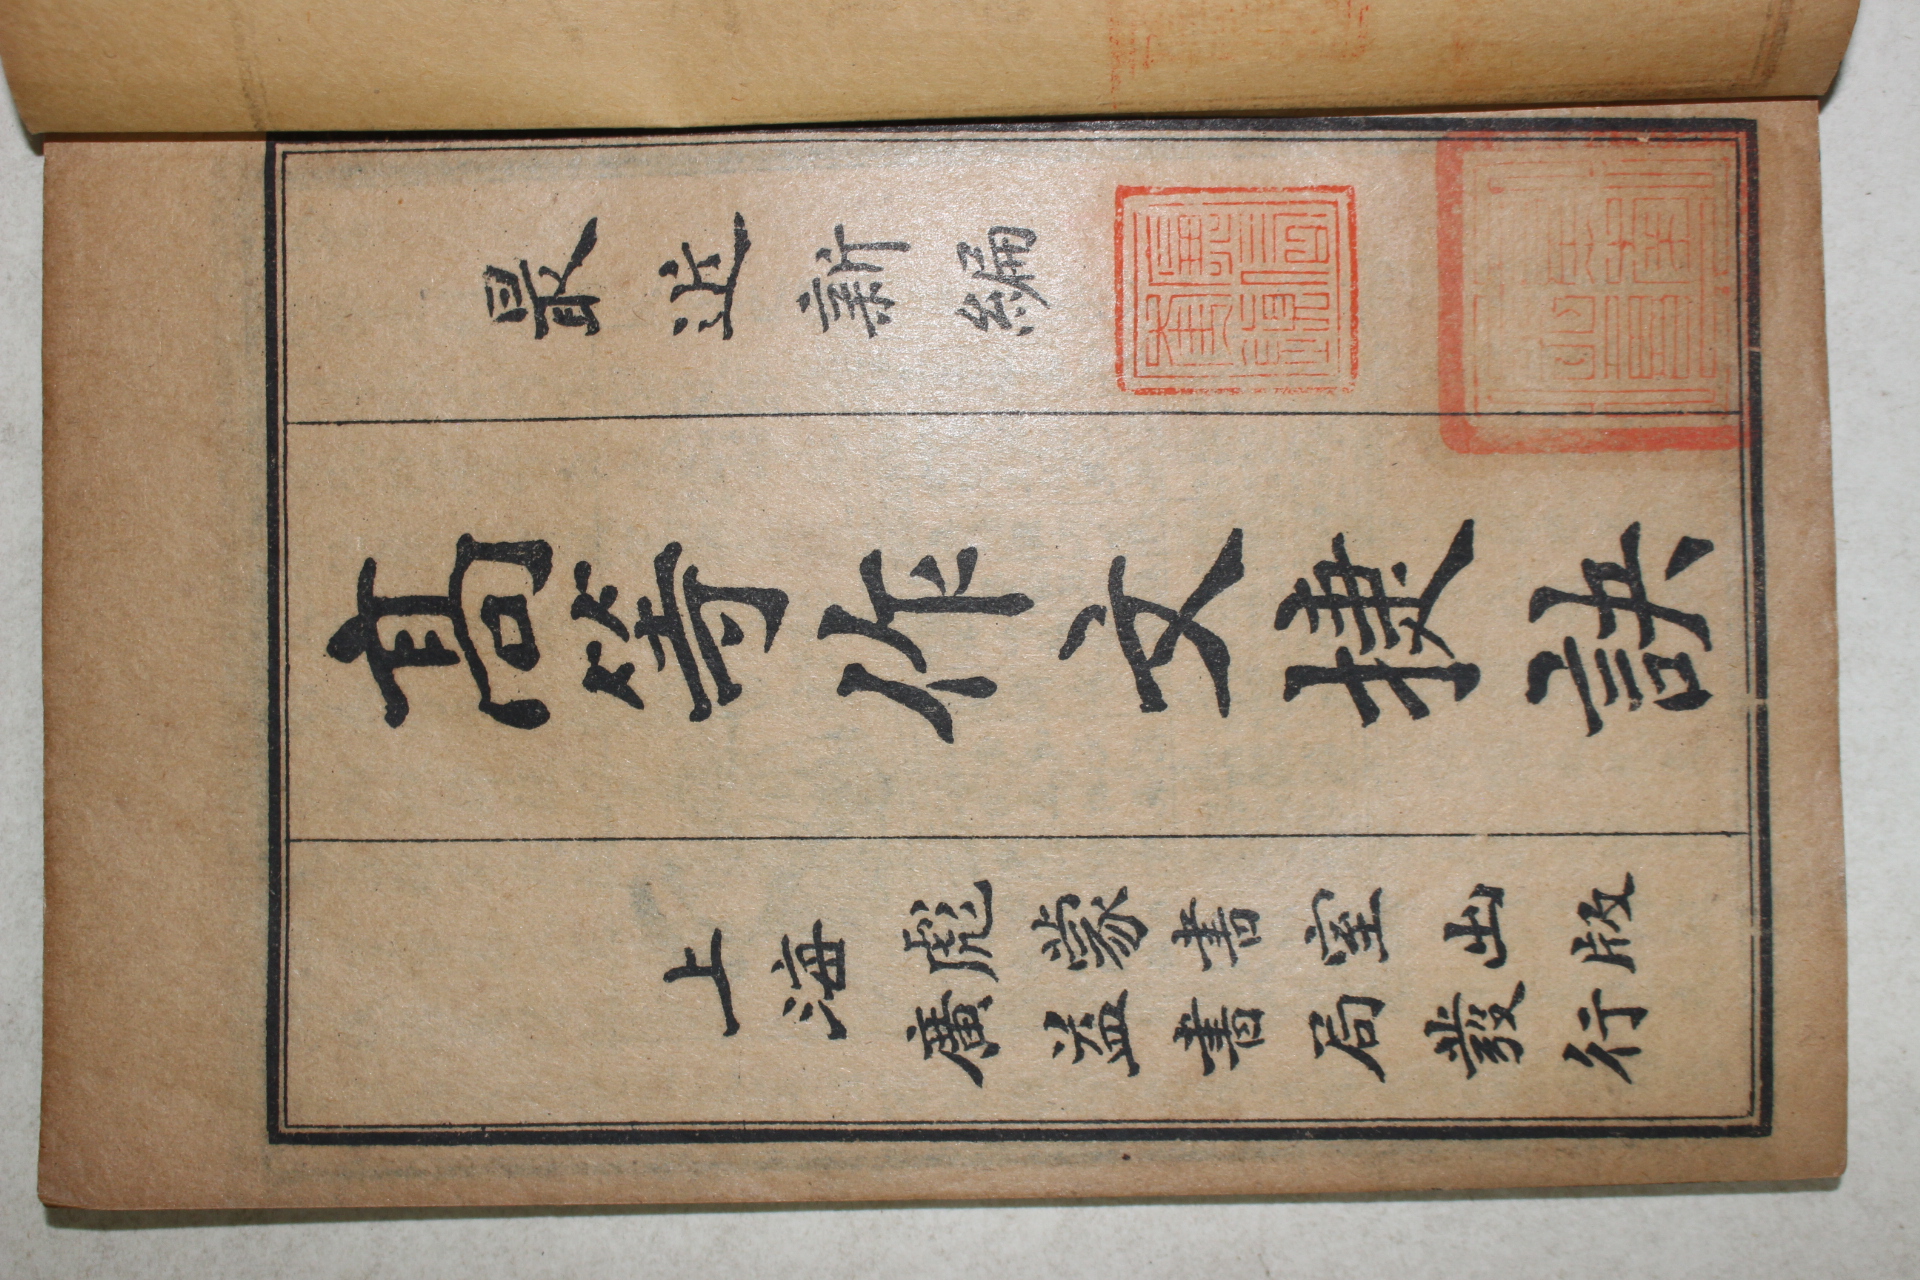 最近新編
高等作文捷訣
上海彪蒙書室出版
廣益書局發行